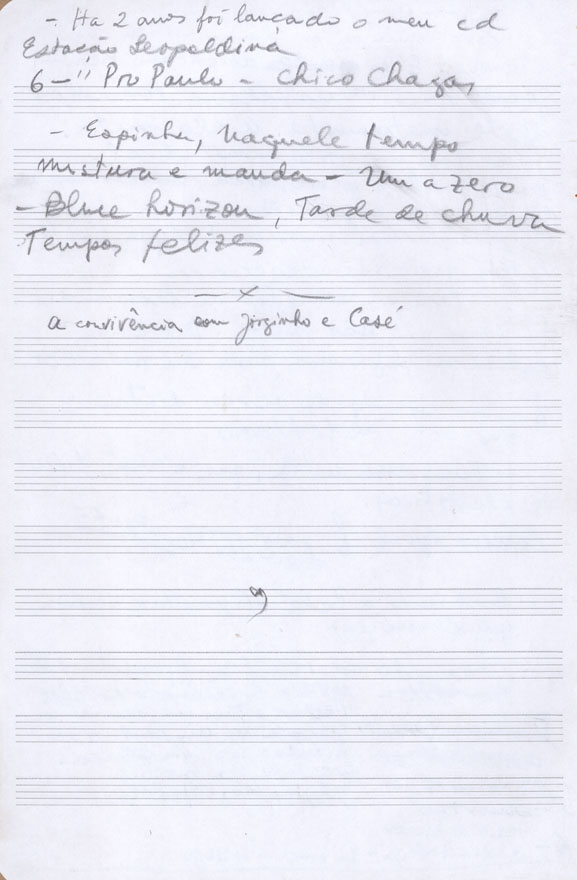 - Ha 2 anos foi lançado o meu cd
Estação Leopoldina
6 - " Pro Paulo - Chico Chagas
- Espinha, Naquele tempo
mistura e manda - Um a zero
- Blue horizon, Tarde de chuva
Tempos felizes
— x —
a convivência com Jorginho e Casé